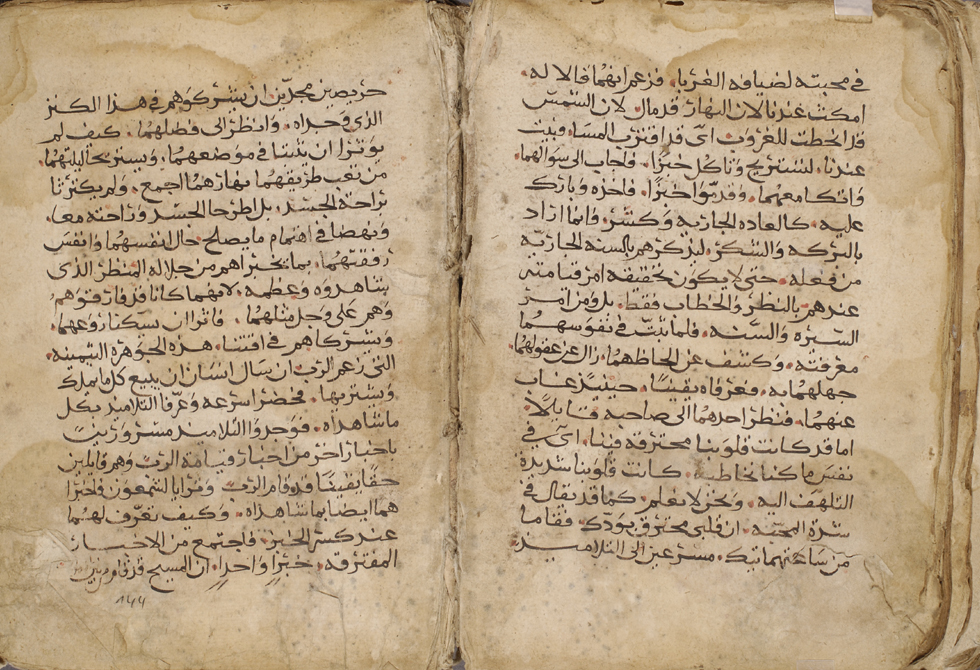 في محبته لضيافه الغربا. فزعم انهما قالا له.
امكث عندنا لان النهار قد مال. لان الشمس
قد انحطت للغروب اي قد اقترب المسا. فبت
عندنا. لتستريح وتاكل خبزا. فاجاب الى سوالهما.
واتكا معهما. وقدموا خبزا. فاخذه وبارك
عليه. كالعاده الجاريه وكسر. وانما اراد
بالبركه والشكر. ليذكرهم بالسنه الجاريه
من فعله. حتى لا يكون تحقيقه امر قيامته
عندهم بالنظر والخطاب فقط. بل ومن امر
السيرة والسنه. فلما ثبت في نفوسهما
معرفته. وكشف عن الحاظهما. زال عن عقولهما.
جهلهما به. وعرفاه يقينا. حينيذ غاب
عنهما. فنظر احدهما الى صاحبه قايلا.
اما قد كانت قلوبنا محترقه فينا. اي في
نفس ما كنا نخاطبه. كانت قلوبنا شديدة
التلهف اليه. ونحن لا نعلم. كما قد يقال في
شدة المحبه. ان قلبي محترق بودك. فقاما
من ساعتهما تيك. مسرعين الى التلاميذ.
حريصين مجدين ان يشركوهم في هذا الكنز
الذي وجداه. وانظر الى فضلهما. كيف لم
يوثرا ان يثبتا في موضعهما. ويستريحا ليلتهما.
من تعب طريقهما نهارهما الجمع. ولم يكترثا
براحة الجسد. بل اطرحا الجسد وراحته معا.
ونهضا في اهتمام ما يصلح حال انفسهما وانفس
رفقتهما. بما تخبراهم من جلاله المنظر الذي
شاهدوه وعظمه. لانهما كانا قد فارقوهم
وهم على وجل مثلهما. فاثرا ان يسكنا روعهما.
ويشركاهم في اقتنا. هذه الجوهرة الثمينه.
التي زعم الرب ان سال انسان ان يبيع كل ما يملك
ويشتريها. فحضرا سرعه وعرفا التلاميذ بكل
ما شاهداه. فوجدوا التلاميذ مسرورين
باخبار اخر من اخبار قيامة الرب وهم قايلين
حقا يقينا قد قام الرب وترايا لشمعون فاخبرا
هما ايضا بما شاهداه. وكيف تعرف لهما
عند كسر الخبز. فاجتمع من الاخبار
المفترقه. خبرا واحدا. ان المسيح قد قام من بين
١٤٤